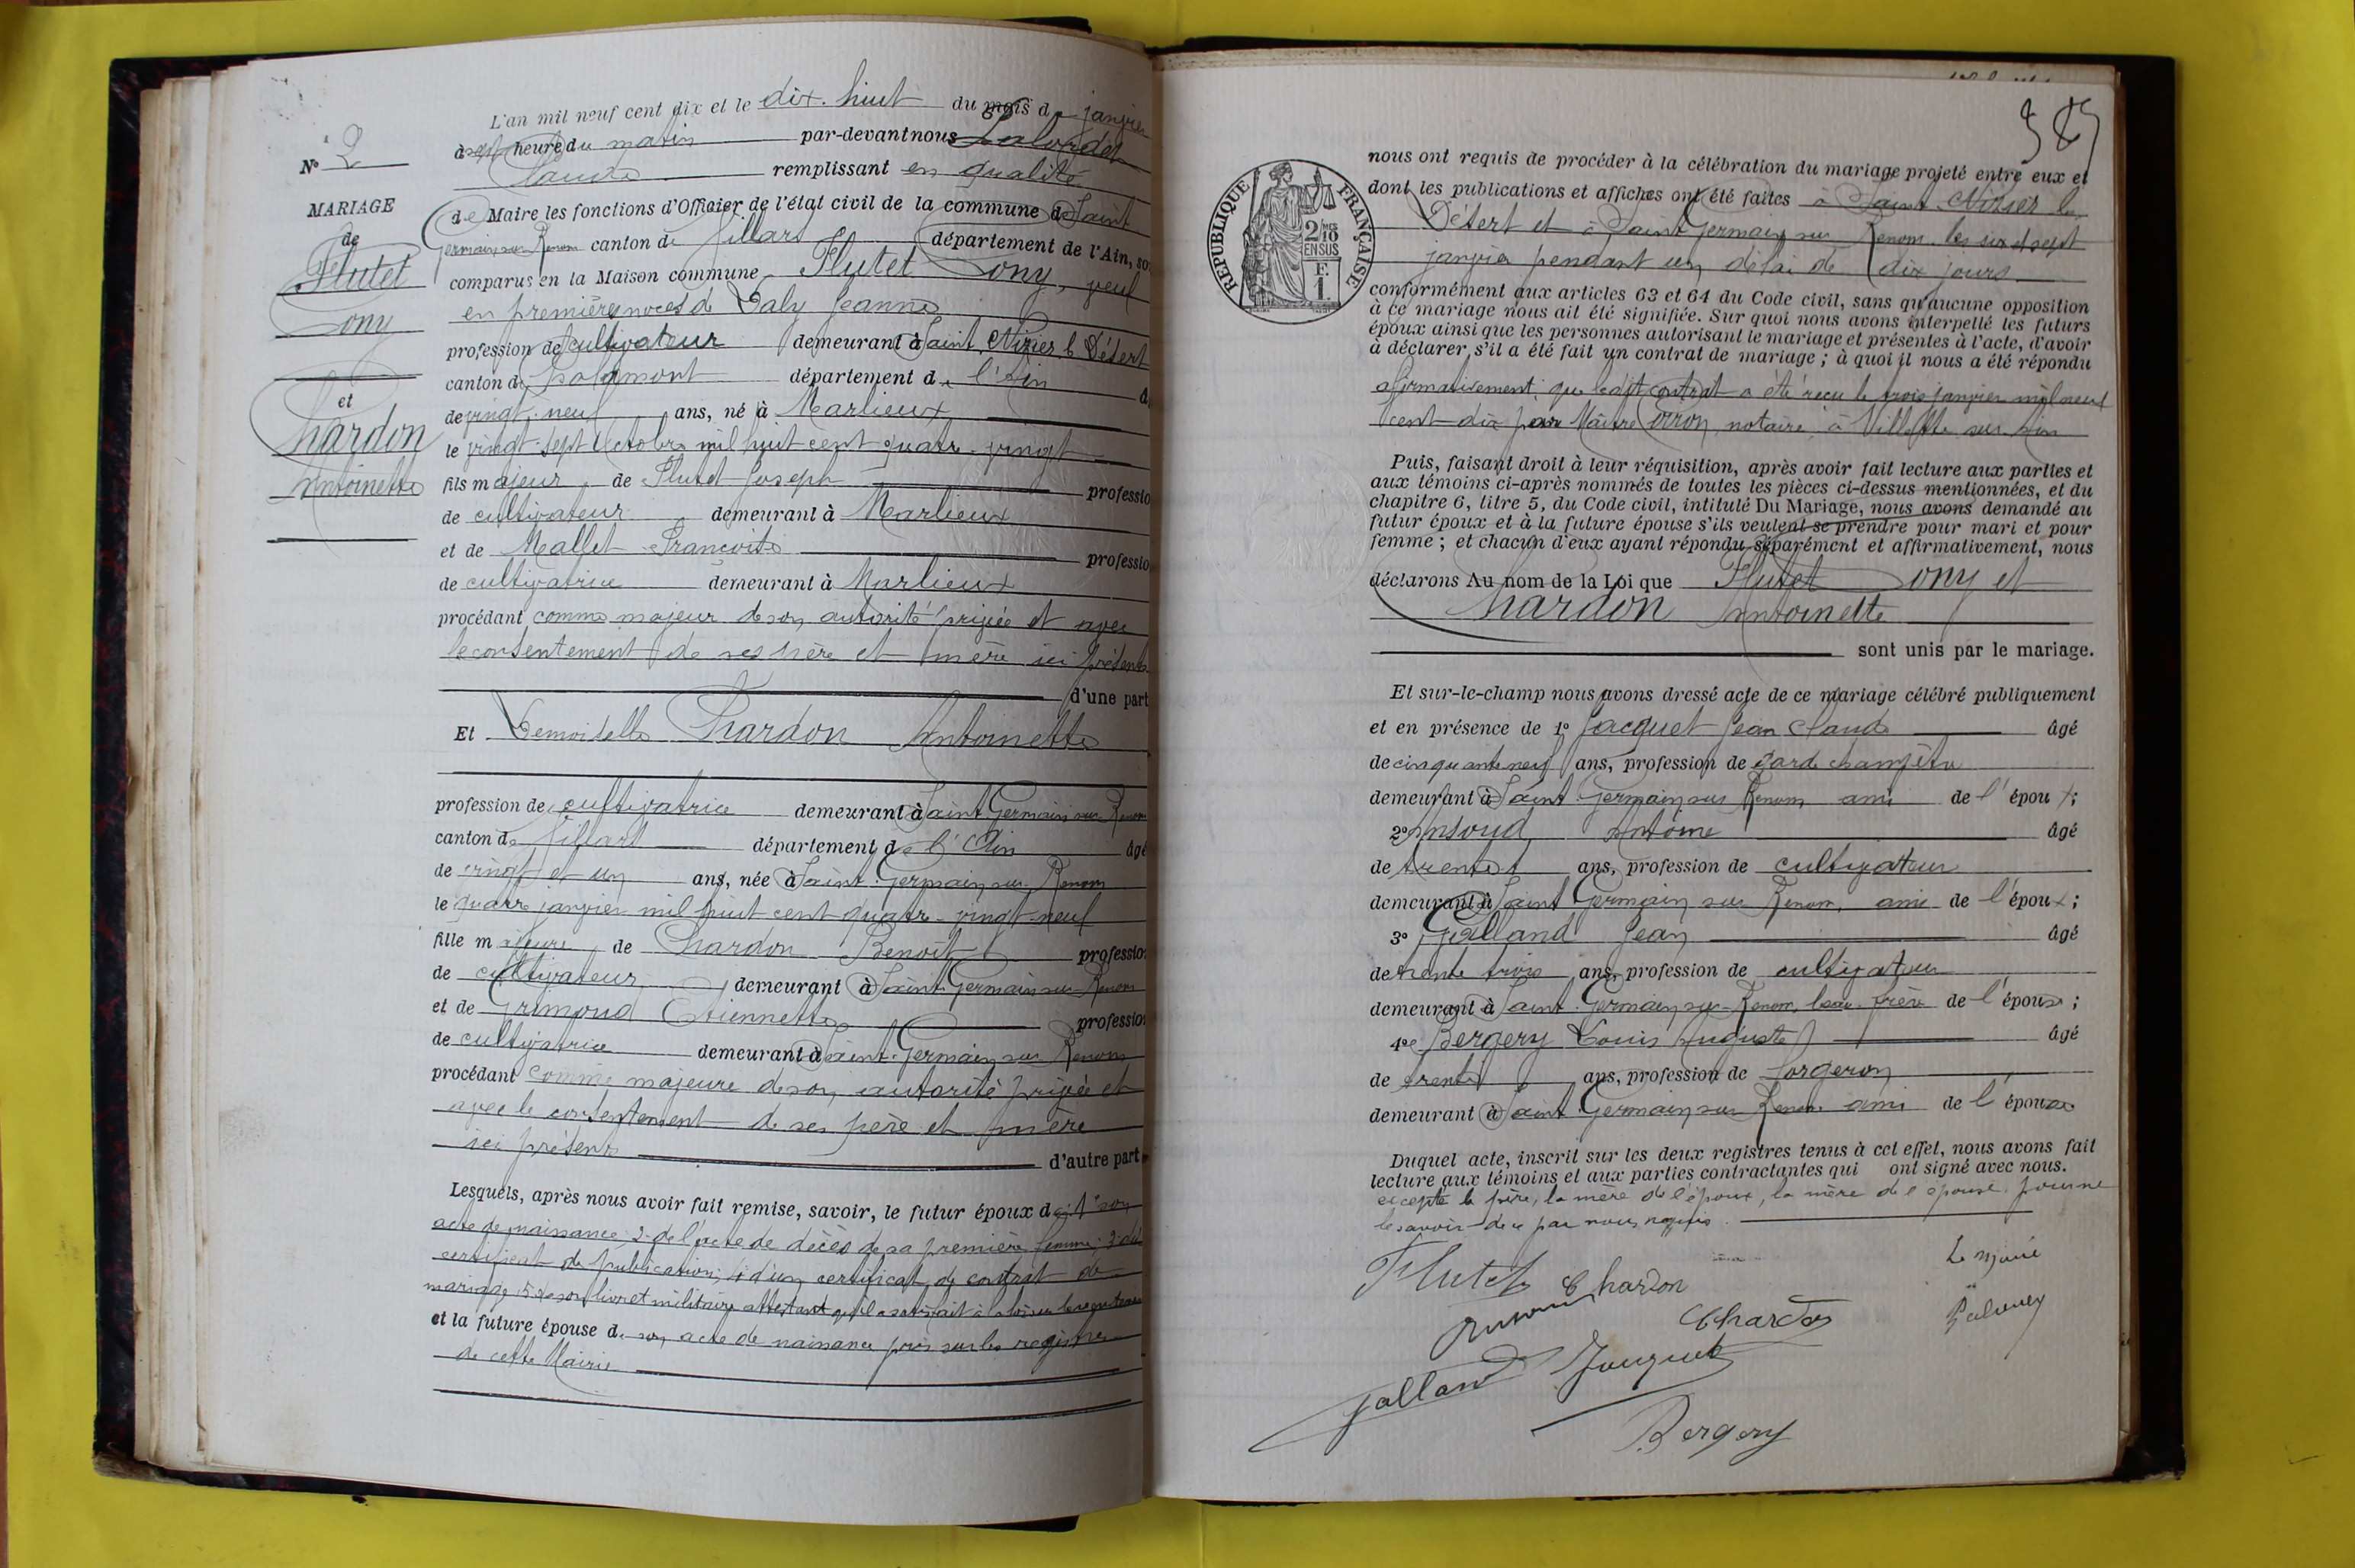 L'an mil neuf cent dix et le dix-huit du mois de janvier
à sept heure du matin par-devant nous
Claude remplissant en qualité
N° 2
de Maire les fonctions d'Officier de l'état civil de la commune de Saint
MARIAGE
Germain sur Renom canton de Villars département de l'Ain, so
de
Flutet
comparus en la Maison commune Flutet Tony, veuf
Tony
en premières noces de Valy Jeanne
profession de cultivateur demeurant à Saint Nizier le Désert
canton de Chalamont département de l'Ain
et
de vingt-neuf ans, né à Marlieux
Chardon
le vingt-sept octobre mil huit cent quatre-vingt
Antoinette
fils majeur de Flutet Joseph professio
de cultivateur demeurant à Marlieux
et de Mallet Françoise professio
de cultivatrice demeurant à Marlieux
procédant comme majeur de son autorité privée et avec
le consentement de ses père et mère ici présents
d'une part
Et Demoiselle Chardon Antoinette
profession de cultivatrice demeurant à Saint Germain sur Renom
canton de Villars département de l'Ain âgé
de vingt et un ans, née à Saint Germain sur Renom
le quatre janvier mil huit cent quatre-vingt-neuf
fille majeure de Chardon Benoît professio
de cultivateur demeurant à Saint Germain sur Renom
et de Grimoud Etiennette profession
de cultivatrice demeurant à Saint-Germain sur Renom
procédant comme majeure de son autorité privée et
avec le consentement de ses père et mère
ici présents d'autre part
Lesquels, après nous avoir fait remise, savoir, le futur époux de 1° son
acte de naissance 2° de l'acte de décès de sa première femme; 3° du
certificat de publication; 4° d'un certificat de contrat de
mariage 5° de son livret militaire attestant qu'il a satisfait à la loi sur le recrutement
et la future épouse de son acte de naissance pris sur les registres
de cette Mairie
385
nous ont requis de procéder à la célébration du mariage projeté entre eux et
dont les publications et affiches ont été faites à Saint Nizier le
Désert et à Saint Germain sur Renom les six et sept
janvier pendant un délai de dix jours
RÉPUBLIQUE FRANÇAISE
2/10 MES
EN SUS
F.
1.
conformément aux articles 63 et 64 du Code civil, sans qu'aucune opposition
à ce mariage nous ait été signifiée. Sur quoi nous avons interpellé les futurs
époux ainsi que les personnes autorisant le mariage et présentes à l'acte, d'avoir
à déclarer s'il a été fait un contrat de mariage ; à quoi il nous a été répondu
affirmativement; que ledit contrat a été reçu le trois janvier mil neuf
cent dix par Maître Corron notaire à Villette sur Ain
Puis, faisant droit à leur réquisition, après avoir fait lecture aux parties et
aux témoins ci-après nommés de toutes les pièces ci-dessus mentionnées, et du
chapitre 6, titre 5, du Code civil, intitulé Du Mariage, nous avons demandé au
futur époux et à la future épouse s'ils veulent se prendre pour mari et pour
femme ; et chacun d'eux ayant répondu séparément et affirmativement, nous
déclarons Au nom de la Loi que Flutet Tony et
Chardon Antoinette
sont unis par le mariage.
Et sur-le-champ nous avons dressé acte de ce mariage célébré publiquement
et en présence de 1° Jacquet Jean Claude âgé
de cinquante neuf ans, profession de garde champêtre
demeurant à Saint Germain sur Renom ami de l'époux ;
2° Ansoud Antoine âgé
de trente ans, profession de cultivateur
demeurant à Saint Germain sur Renom, ami de l'époux ;
3° Galland Jean âgé
de trente trois ans, profession de cultivateur
demeurant à Saint-Germain sur Renom, beau-frère de l'épouse ;
4° Bergery Louis Auguste âgé
de trente ans, profession de forgeron
demeurant à Saint Germain sur Renom ami de l'épouse
Duquel acte, inscrit sur les deux registres tenus à cet effet, nous avons fait
lecture aux témoins et aux parties contractantes qui ont signé avec nous.
excepté le père, la mère de l'époux, la mère de l'épouse pour ne
le savoir de ce par nous requis.
Flutet Chardon Le Maire
Chardon
Galland Jacquet
Bergery